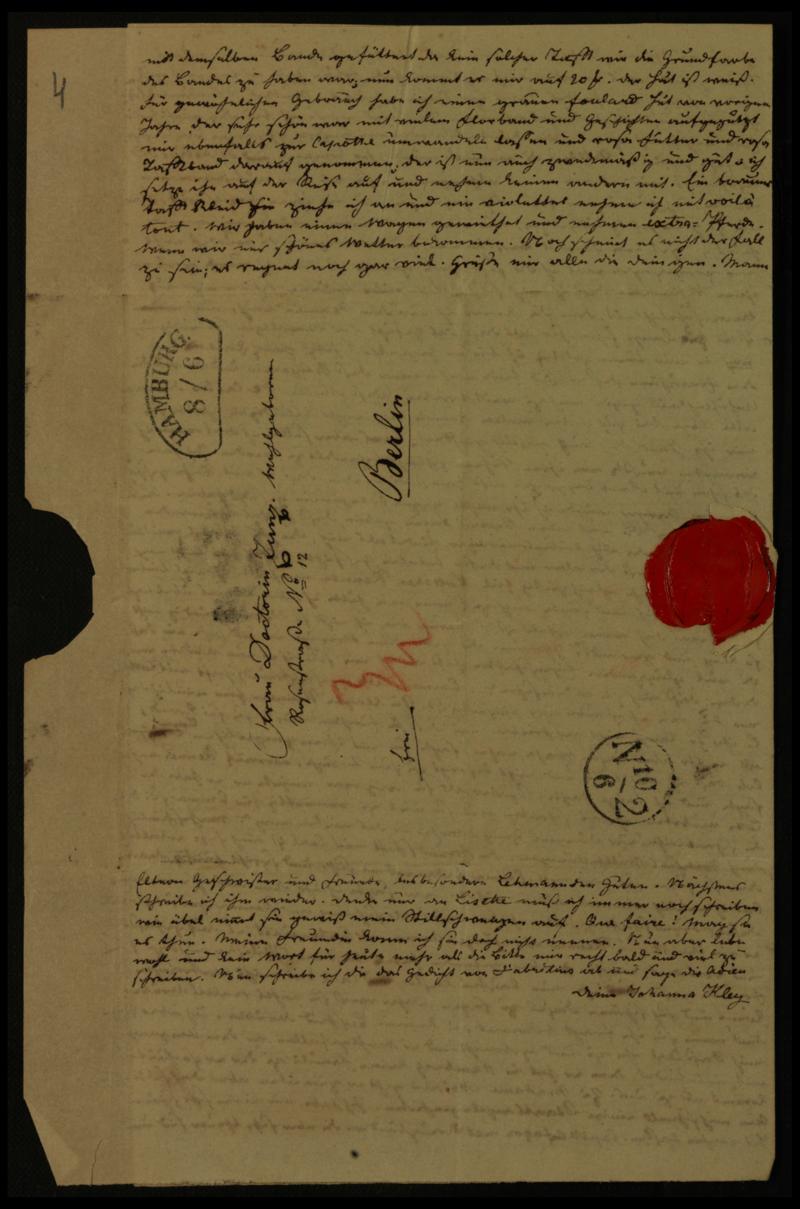 4
mit demselben Bande gefüttert da kein solcher Tafft wie die Grundfarbe
des Bandes zu haben war; nun kommt er mir auf 20 fr. der Hut ist weiß.
Für gewöhnlichen Gebrauch habe ich einen grauen foulard Hut vom vorigen
Jahre der sehr schön war mit vielem Florband und Geschichten aufgeputzt
mir ebenfalls zur Capotte umwandeln lassen und rosa Futter und rosa
Tafftband darauf genommen, der ist nun auch zweckmäßig und gut; ich
setze ihn auf der Reise auf und nehme keinen andern mit. Ein braunes
Tafft Kleid ziehe ich an und ein violettes nehme ich mit voilà
tout. Wir haben einen Wagen gemiethet und nehmen extra-Pferde.
Wenn wir nur schönes Wetter bekommen. Noch scheint es nicht der Fall
zu sein; es regnet noch gar viel. Grüße mir alle die deinigen. Mann
HAMBURG
8/6
Frau Doctorin Zunz. Wohlgeboren
Rosenstraße No 12
Berlin
frei
N 2
10/6
Eltern Geschwister und Freunde, insbesondere Lehmann den Guten. Nächstens
schreibe ich ihm wieder. Denke nur an muß ich immer noch schreiben
wie übel nimmt sie gewiß mein Stillschweigen auf. Que faire! Mag sie
es thun. Meine Freundin kann ich sie doch nicht nennen. Nun aber lebe
wohl und kein Wort für heute mehr als die Bitte mir recht bald und viel zu
schreiben. Nun schreibe ich dir das Gedicht von ab und sage dir Adieu
deine Johanna Kley